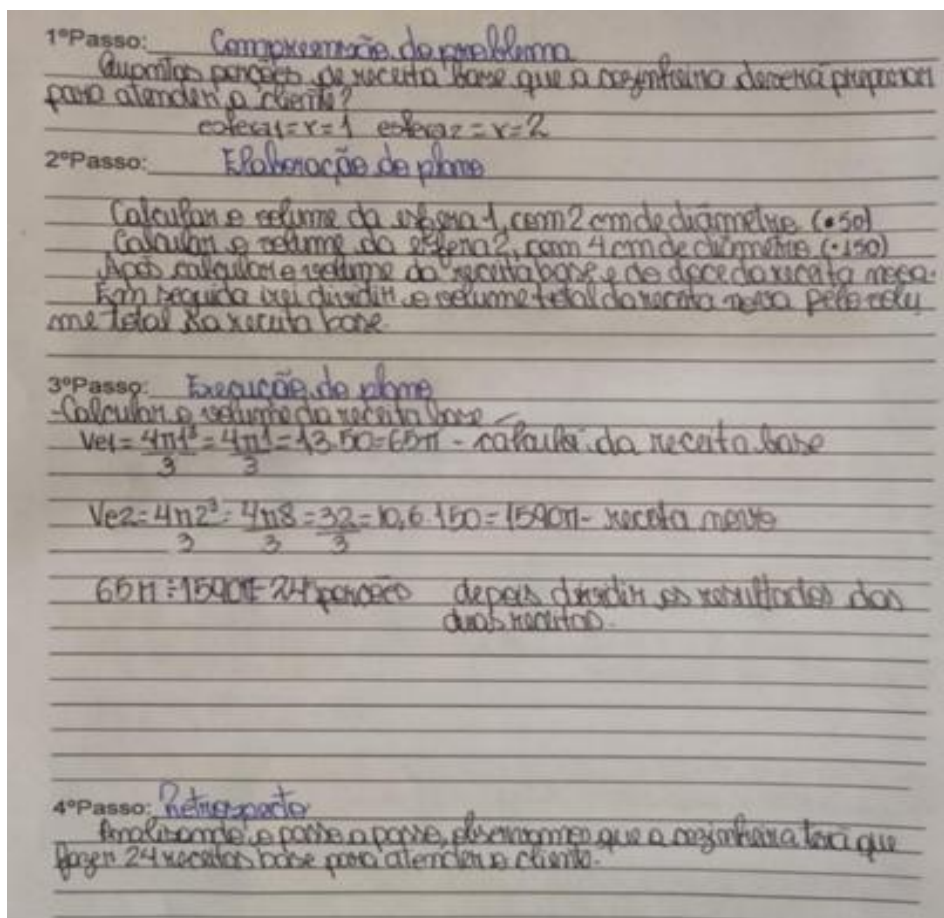 1ºPasso: Compreensão do problema
Quantas porções de receita base que a cozinheira deverá preparar
para atender a cliente?
esfera1=r=1 esfera2=r=2
2ºPasso: Elaboração do plano
Calcular o volume da esfera 1, com 2 cm de diâmetro (•50)
Calcular o volume da esfera 2, com 4 cm de diâmetro (•150)
Após calcular o volume da receita base e do doce da receita nova.
Em seguida irei dividir o volume total da receita nova pelo volu
me total da receita base.
3ºPasso: Execução do plano
-Calcular o volume da receita base
Ve1=4π1³/3=4π1/3=1,3.50=65π - calculei da receita base
Ve2=4π2³/3=4π8/3=32/3=10,6.150=1590π- receita nova
65π÷1590π= 24 porções depois dividir os resultados das
duas receitas.
4ºPasso: Retrospecto
Analisando o passo a passo, observamos que a cozinheira terá que
fazer 24 receitas base para atender a cliente.